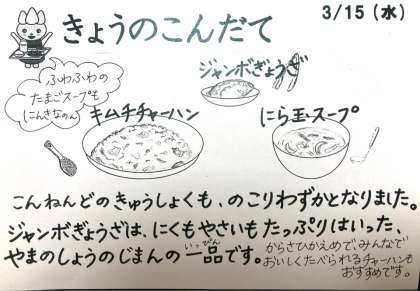 きょうのこんだて
3/15（水）
ふわふわの
たまごスープも
にんきなのん
ジャンボぎょうざ
キムチチャーハン
にら玉スープ
こんねんどのきゅうしょくも、のこりわずかとなりました。
ジャンボぎょうざは、にくもやさいもたっぷりはいった、
やまのしょうのじまんの一品です。
いっぴん
からさひかえめで、みんなで
おいしくたべられるチャーハンも
おすすめです。